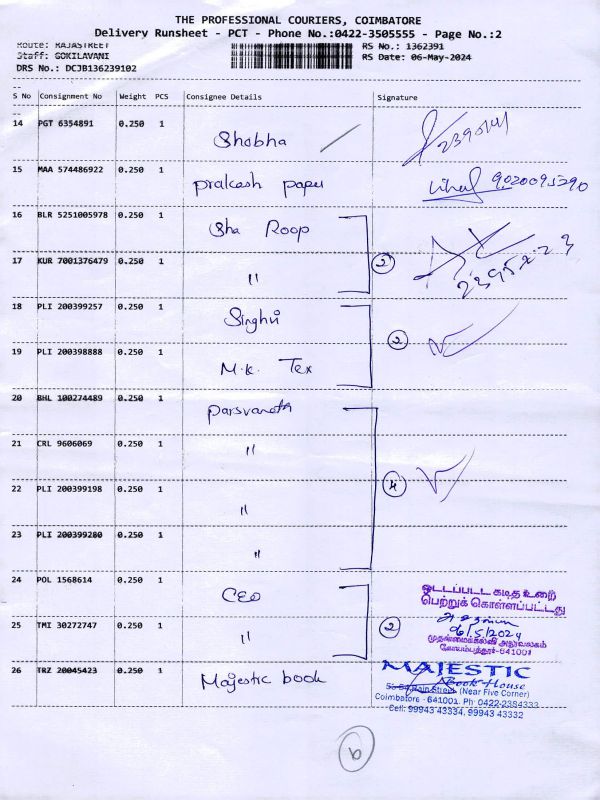 THE PROFESSIONAL COURIERS, COIMBATORE
Delivery Runsheet - PCT - Phone No.:0422-3505555 - Page No.:2
Route: RAJASTREET
RS No.: 1362391
Staff: GOKILAVANI
RS Date: 06-May-2024
DRS No.: DCJB136239102
S No Consignment No Weight PCS Consignee Details Signature
14 PGT 6354891 0.250 1 Shobha
15 MAA 574486922 0.250 1 prakash paper 9020095290
16 BLR 5251005978 0.250 1 Sha Roop
17 KUR 7001376479 0.250 1 " 2
18 PLI 200399257 0.250 1 Singhvi
2
19 PLI 200398888 0.250 1 M.K. Tex
20 BHL 100274489 0.250 1 parsvanath
21 CRL 9606069 0.250 1 "
22 PLI 200399198 0.250 1 " 4
23 PLI 200399280 0.250 1 "
24 POL 1568614 0.250 1 CEO
ஒட்டப்பட்ட கடித உறை
பெற்றுக் கொள்ளப்பட்டது
25 TMI 30272747 0.250 1 " 2
06/5/2024
முதன்மைக்கல்வி அலுவலகம்
கோயம்புத்தூர்-641001
26 TRZ 20045423 0.250 1 Majestic book
MAJESTIC
Book House
Main Street (Near Five Corner)
Coimbatore - 641001. Ph: 0422-2384333
Cell: 99943 43334, 99943 43332
6